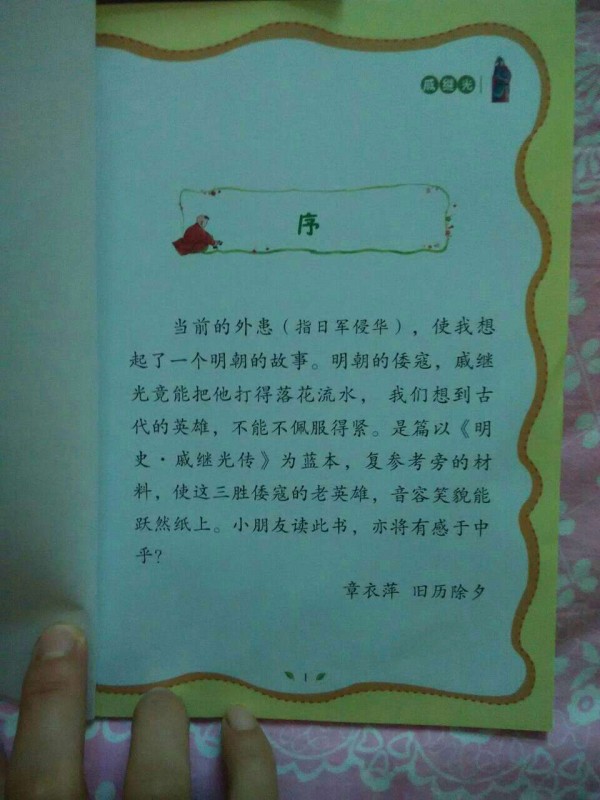 戚继光
序
当前的外患（指日军侵华），使我想
起了一个明朝的故事。明朝的倭寇，戚继
光竟能把他打得落花流水， 我们想到古
代的英雄，不能不佩服得紧。是篇以《明
史·戚继光传》为蓝本，复参考旁的材
料，使这三胜倭寇的老英雄，音容笑貌能
跃然纸上。小朋友读此书，亦将有感于中
乎？
章衣萍 旧历除夕
1